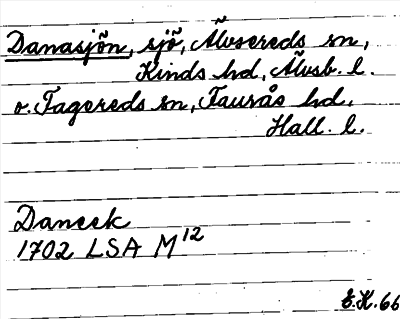 Danasjön, sjö, Älvsereds sn,
Kinds hd, Älvsb. l.
o. Fagereds sn, Faurås hd,
Hall. l.
Daneek
1702 LSA M 12
E.H. 66